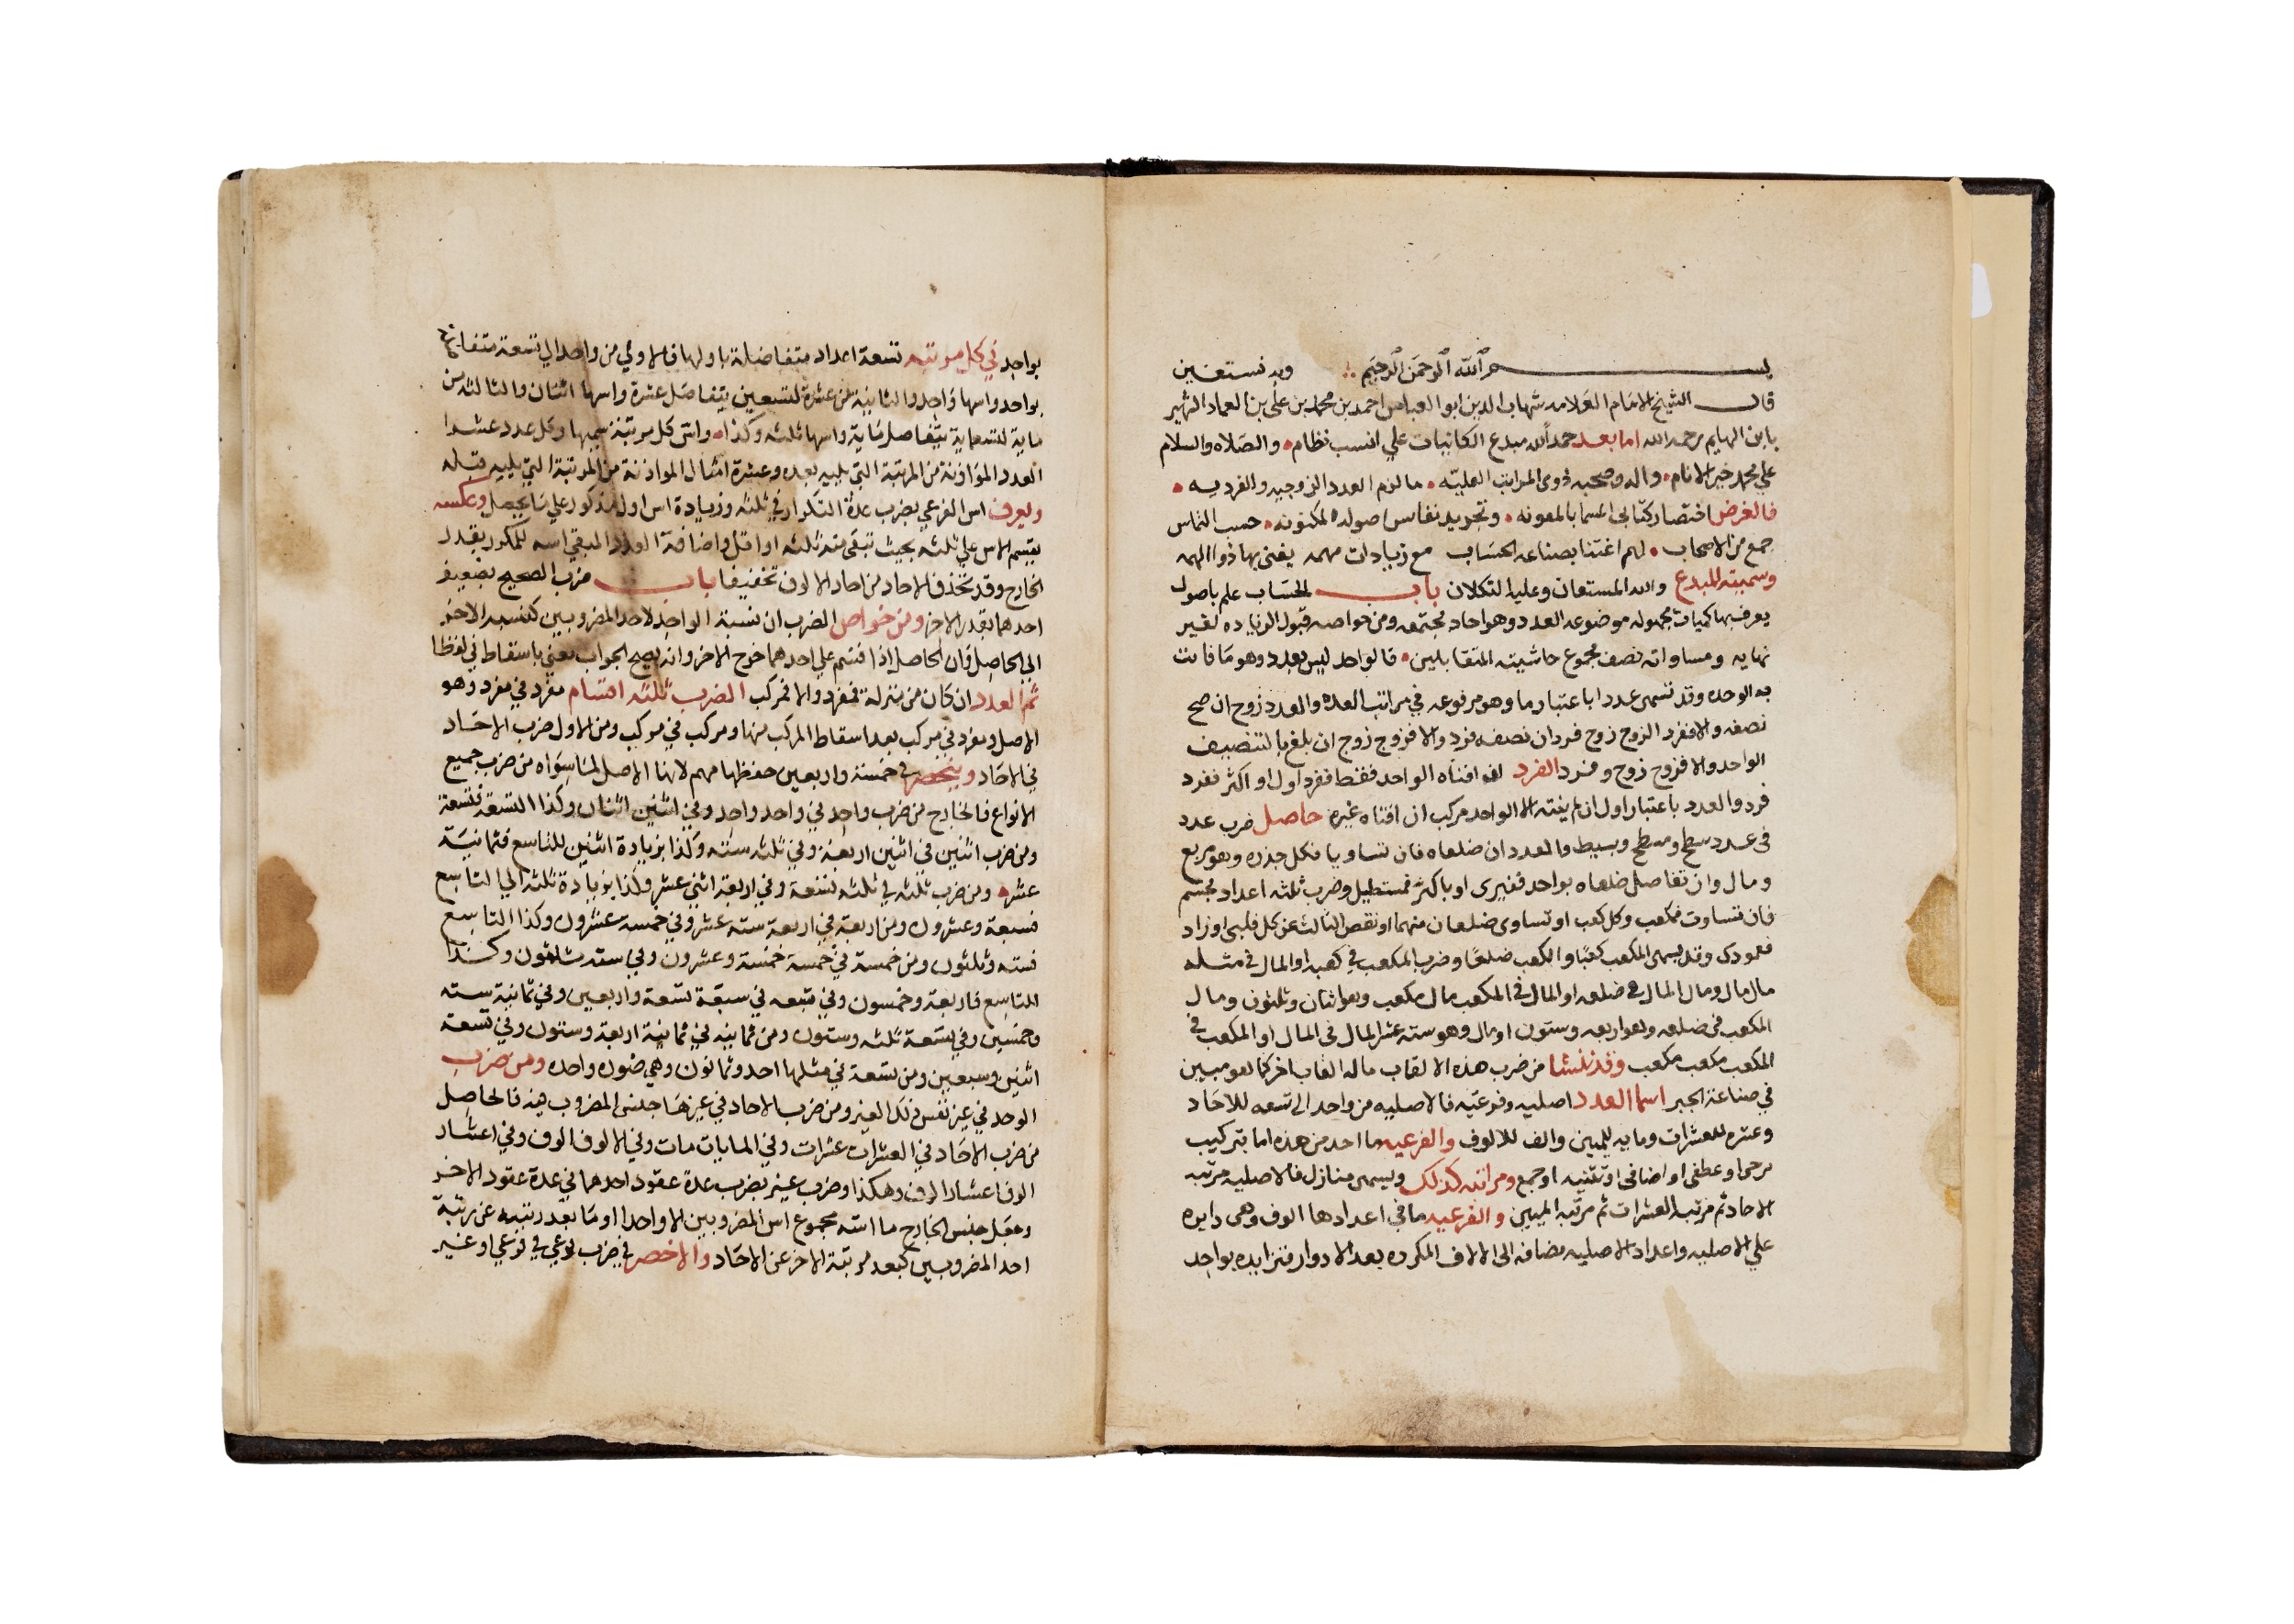 بسم الله الرحمن الرحيم وبه نستعين
قال الشيخ الامام العلامه شهاب الدين ابو العباس احمد بن محمد بن علي بن العماد الشهير
بابن الهايم رحمه الله اما بعد حمد الله مبدع الكاينات علي انسب نظام والصلاه والسلام
علي محمد خير الانام واله وصحبه ذوي المراتب العليه ما لزم العدد الزوجيه والفرديه
فالغرض اختصار كتابي المسما بالمعونه وتجريد نفايس اصوله المكنونه حسب التماس
جمع من الاصحاب لهم اعتنا بصناعه الحساب مع زيادات مهمه يغني بها ذوا الهمه
وسميته المبدع والله المستعان وعليه التكلان باب الحساب علم باصول
يعرف بها كميات مجهوله موضوعه العدد وهو احاد مجتمعه ومن خواصه قبول الزياده لغير
نهايه ومساواته نصف مجموع حاشيته المتقابلين فالواحد ليس بعدد وهو ما قامت
به الوحده وقد تسمى عددا باعتبار ما وهو مرفوعه في مراتب العده والعدد زوج ان صح
نصفه والا ففرد الزوج زوج فرد ان نصفه فرد والا فزوج زوج ان بلغ بالتنصيف
الواحد والا فزوج زوج وفرد الفرد ان افناه الواحد فقط ففرد اول او اكثر ففرد
فرد والعدد باعتبار اول ان لم يفنه الا الواحد مركب ان افناه غيره حاصل ضرب عدد
في عدد سطح ومسطح وبسيط والعددان ضلعاه فان تساويا فكل جذره وهو مربع
ومال وان تفاضل ضلعاه بواحد فغيرى او باكثر فمستطيل وضرب ثلثه اعداد مجسم
فان تساوت فمكعب وكل كعب او تساوى ضلعان منهما او نقص الثالث عن كل فلبنى او زاد
فعمودى وقد يسمى المكعب كعبا والكعب ضلعا وضرب المكعب في كعبه او المال في مثله
مال مال ومال المال في ضلعه او المال في المكعب مال مكعب وهو اثنان وثلثون ومال
المكعب في ضلعه وهو اربعه وستون او مال وهو سته عشر المال في المال او المكعب في
المكعب مكعب مكعب وقد ينشا من ضرب هذه الالقاب ماله القاب اخر كما هو مبين
في صناعة الجبر اسما العدد اصليه وفرعيه فالاصليه من واحد الى تسعه للاحاد
وعشره للعشرات ومايه للميين والف للالوف والفرعيه ما احد من هذه اما بتركيب
مزجى او عطفى او اضافى او تثنيه او جمع ومراتبه كذلك ويسمى منازل فالاصليه مرتبه
الاحاد ثم مرتبه العشرات ثم مرتبه الميين والفرعيه ما في اعدادها الوف وهى دايره
علي الاصليه واعداد الاصليه مضافه الى الالاف المكرره بعد الادوار فتزايده بواحد
بواحد في كل مرتبه تسعة اعداد متفاضلة باولها فالاولي من واحد الي تسعة متفاضلة
بواحد واسها واحد والثانية من عشرة لتسعين بتفاضل عشرة واسها اثنان والثالثه من
ماية لتسعماية بتفاضل ماية واسها ثلثه وكذا واس كل مرتبة سميها وكل عدد عشرا
العدد الموازنة من المرتبة التي يليه بعده وعشرة امثال الموازنة من المرتبة التي يليه قبله
ويعرف اس الفرعي بضرب عدة التكرار في ثلثه وزيادة اس اول المذكور علي ما يحصل وعكسه
بقسم الاس علي ثلثه بحيث تبقى منه ثلثه او اقل واضافة العدد الدي بقي اسه للمكرر بقدر
الخارج وقد تحذف الاحاد من احاد الالوف تخفيفا باب ضرب الصحيح تضعيف
احدهما بقدر الاخر ومن خواص الضرب ان نسبة الواحد لاحد المضروبين كنسبه الاخر
الي الحاصل وان الحاصل اذا قسم علي احدهما خرج الاخر وانه يصح الجواب يعني باسقاط في لفظا
ثم العدد ان كان من منزلة فمفرد والا فمركب الضرب ثلثه اقسام مفرد في مفرد وهو
الاصل ومفرد في مركب بعد اسقاط المركب منها ومركب في مركب ومن الاول ضرب الاحاد
في الاحاد وينحصر في خمسة واربعين حفظها مهم لانها الاصل لما سواه من ضرب جميع
الانواع فالخارج من ضرب واحد في واحد واحد وفي اثنين اثنان وكذا التسعة فتسعة
ومن ضرب اثنين في اثنين اربعة وفي ثلثه سته وكذا بزيادة اثنين للتاسع فثمانية
عشر ومن ضرب ثلثه في ثلثه تسعة وفي اربعة اثني عشر وكذا بزيادة ثلثه الي التاسع
فسبعة وعشرون ومن اربعة في اربعة سته عشر وفي خمسه عشرون وكذا التاسع
فسته وثلثون ومن خمسة في خمسة خمسة وعشرون وفي سته ثلاثون وكذا
التاسع فاربعة وخمسون وفي سبعه في سبعة تسعة واربعين وفي ثمانية سته
وخمسين وفي تسعة ثلثه وستون ومن ثمانيه في ثمانية اربعة وستون وفي تسعة
اثنين وسبعين ومن تسعة في مثلها احد وثمانون وهي ضرب واحده ومن ضرب
الوحد في غير نفس ذلك الغير ومن ضرب الاحاد في غيرها جنس المضروب فيه فالحاصل
من ضرب الاحاد في العشرات عشرات وفي المايات مات وفي الالوف الوف وفي اعشار
الوف اعشار الوف وهكذا وضرب غير بضرب عدة عقود احدهما في عدة عقود الاخر
وجعل جنس الخارج ما اسه مجموع اس المضروبين الا واحدا او ما بعد رتبته عن رتبة
احد المضروبين كبعد مرتبة الاخر عن الاحاد والاخصر في ضرب نوعي في نوعي او غير